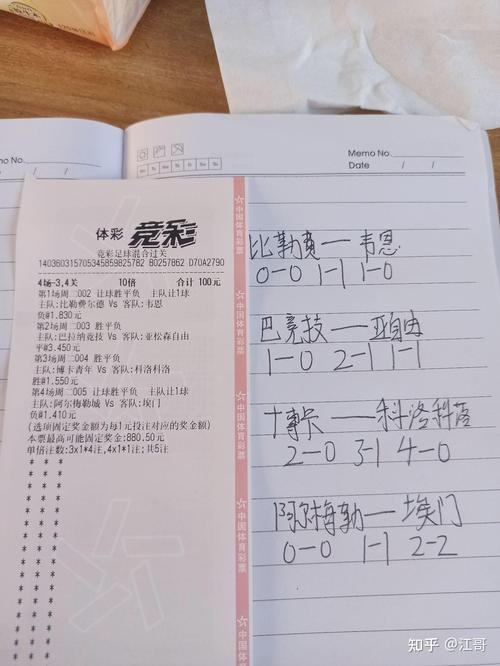 Memo No.
Date / /
Memo No.
体彩 竞彩
竞彩足球混合过关
140360315705345859825782 80257862 D70A2790
4场-3,4关 10倍 合计 100元
第1场周二002 让球胜平负 主队让1球
主队:比勒费尔德 Vs 客队:韦恩
负@1.830元
第2场周二003 胜平负
主队:巴拉纳竞技 Vs 客队:亚松森自由
平@3.450元
第3场周二004 胜平负
主队:博卡青年 Vs 客队:科洛科洛
胜@1.550元
第4场周二005 让球胜平负 主队让1球
主队:阿尔梅勒城 Vs 客队:埃门
负@1.410元
(选项固定奖金额为每1元投注对应的奖金额)
本票最高可能固定奖金:880.50元
单倍注数:3x1*4注,4x1*1注;共5注
中国体育彩票
中国体育彩票
中国体育彩票
中国体育彩票
比勒费—韦恩
0-0 1-1 1-0
巴竞技—亚自由
1-0 2-1 1-1
卡—科洛科洛
2-0 3-1 4-0
阿尔梅勒—埃门
0-0 1-1 2-2
知乎 @江哥